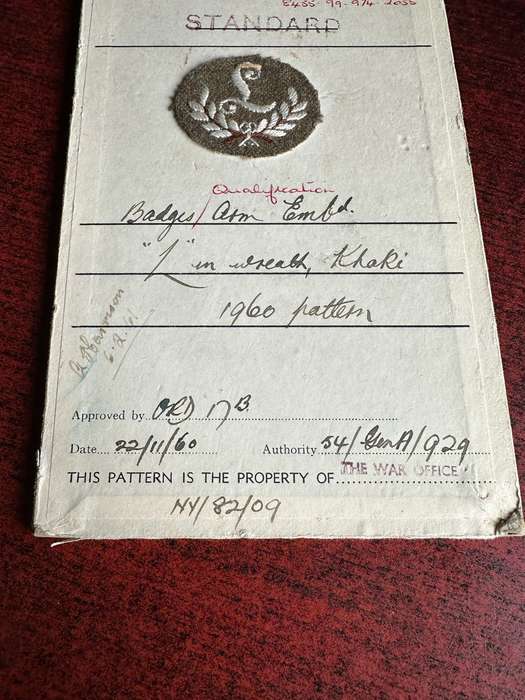 8455-99-974-2055
STANDARD
L
Qualification
Badges / Arm Embd.
"L" in wreath, Khaki
1960 pattern
6.2.61
Approved by ORD 17B
Date 22/11/60 Authority 54/Gen A/929
THIS PATTERN IS THE PROPERTY OF THE WAR OFFICE
NY/82/09